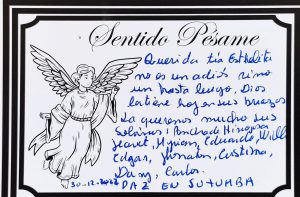 Sentido Pésame
Querida tía Esthelita
no es un adiós sino
un hasta luego, Dios
la tiene hoy en sus brazos
La queremos mucho sus
Sobrinos:
Janet, Myriam, Eduardo, Will
Edgar, Jhonatan, Cristina,
Dany, Carlos.
30-12-
PAZ EN SU TUMBA